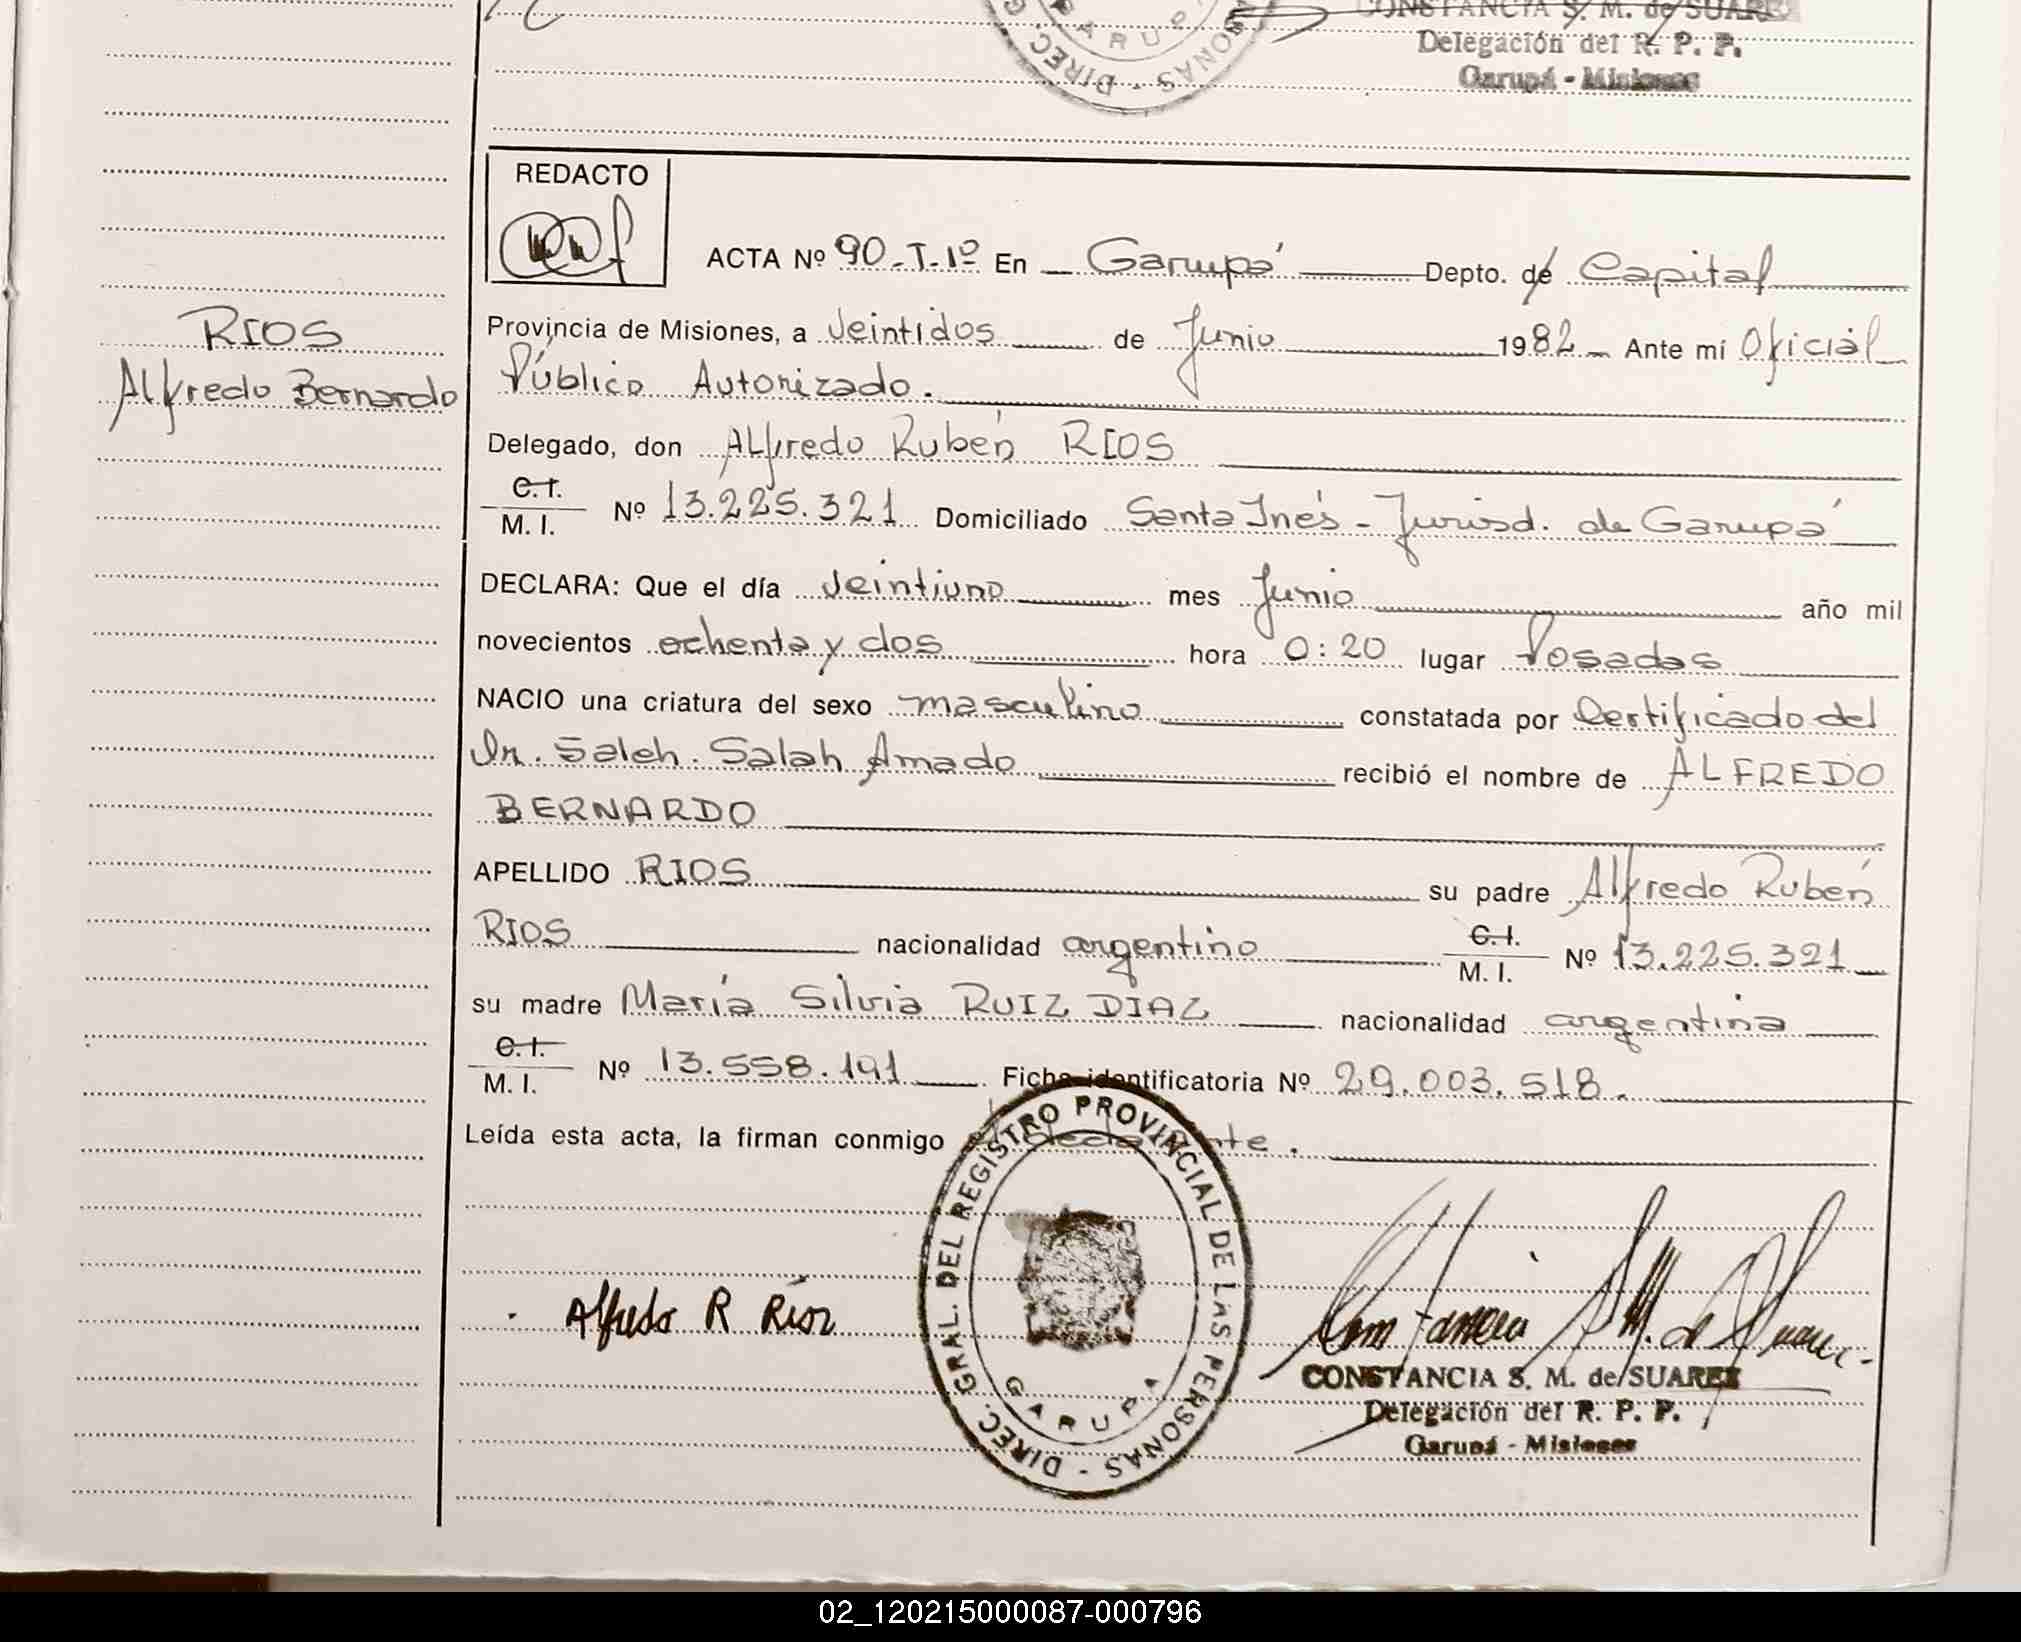 CONSTANCIA S. M. de SUAREZ
Delegación del R. P. P.
Garupá - Misiones
DIREC. PERSONAS - GARUPA
REDACTO
ACTA Nº 90-T-1º En Garupá Depto. de Capital
RIOS
Alfredo Bernardo
Provincia de Misiones, a Veintidos de Junio 1982 Ante mí Oficial
Público Autorizado.
Delegado, don Alfredo Rubén RIOS
C.I. / M. I. Nº 13.225.321 Domiciliado Santa Inés - Jurisd. de Garupá
DECLARA: Que el día Veintiuno mes Junio año mil
novecientos ochenta y dos hora 0:20 lugar Posadas
NACIO una criatura del sexo masculino constatada por Certificado del
Dr. Saleh. Salah Amado recibió el nombre de ALFREDO
BERNARDO
APELLIDO RIOS su padre Alfredo Rubén
RIOS nacionalidad argentino C.I. / M. I. Nº 13.225.321
su madre María Silvia RUIZ DIAZ nacionalidad argentina
C.I. / M. I. Nº 13.558.191 Ficha identificatoria Nº 29.003.518.
Leída esta acta, la firman conmigo el declarante.
DIREC. GRAL. DEL REGISTRO PROVINCIAL DE LAS PERSONAS - GARUPA
Alfredo R Ríos
Constancia S. M. de Suarez
CONSTANCIA S. M. de SUAREZ
Delegación del R. P. P.
Garupá - Misiones
02_120215000087-000796